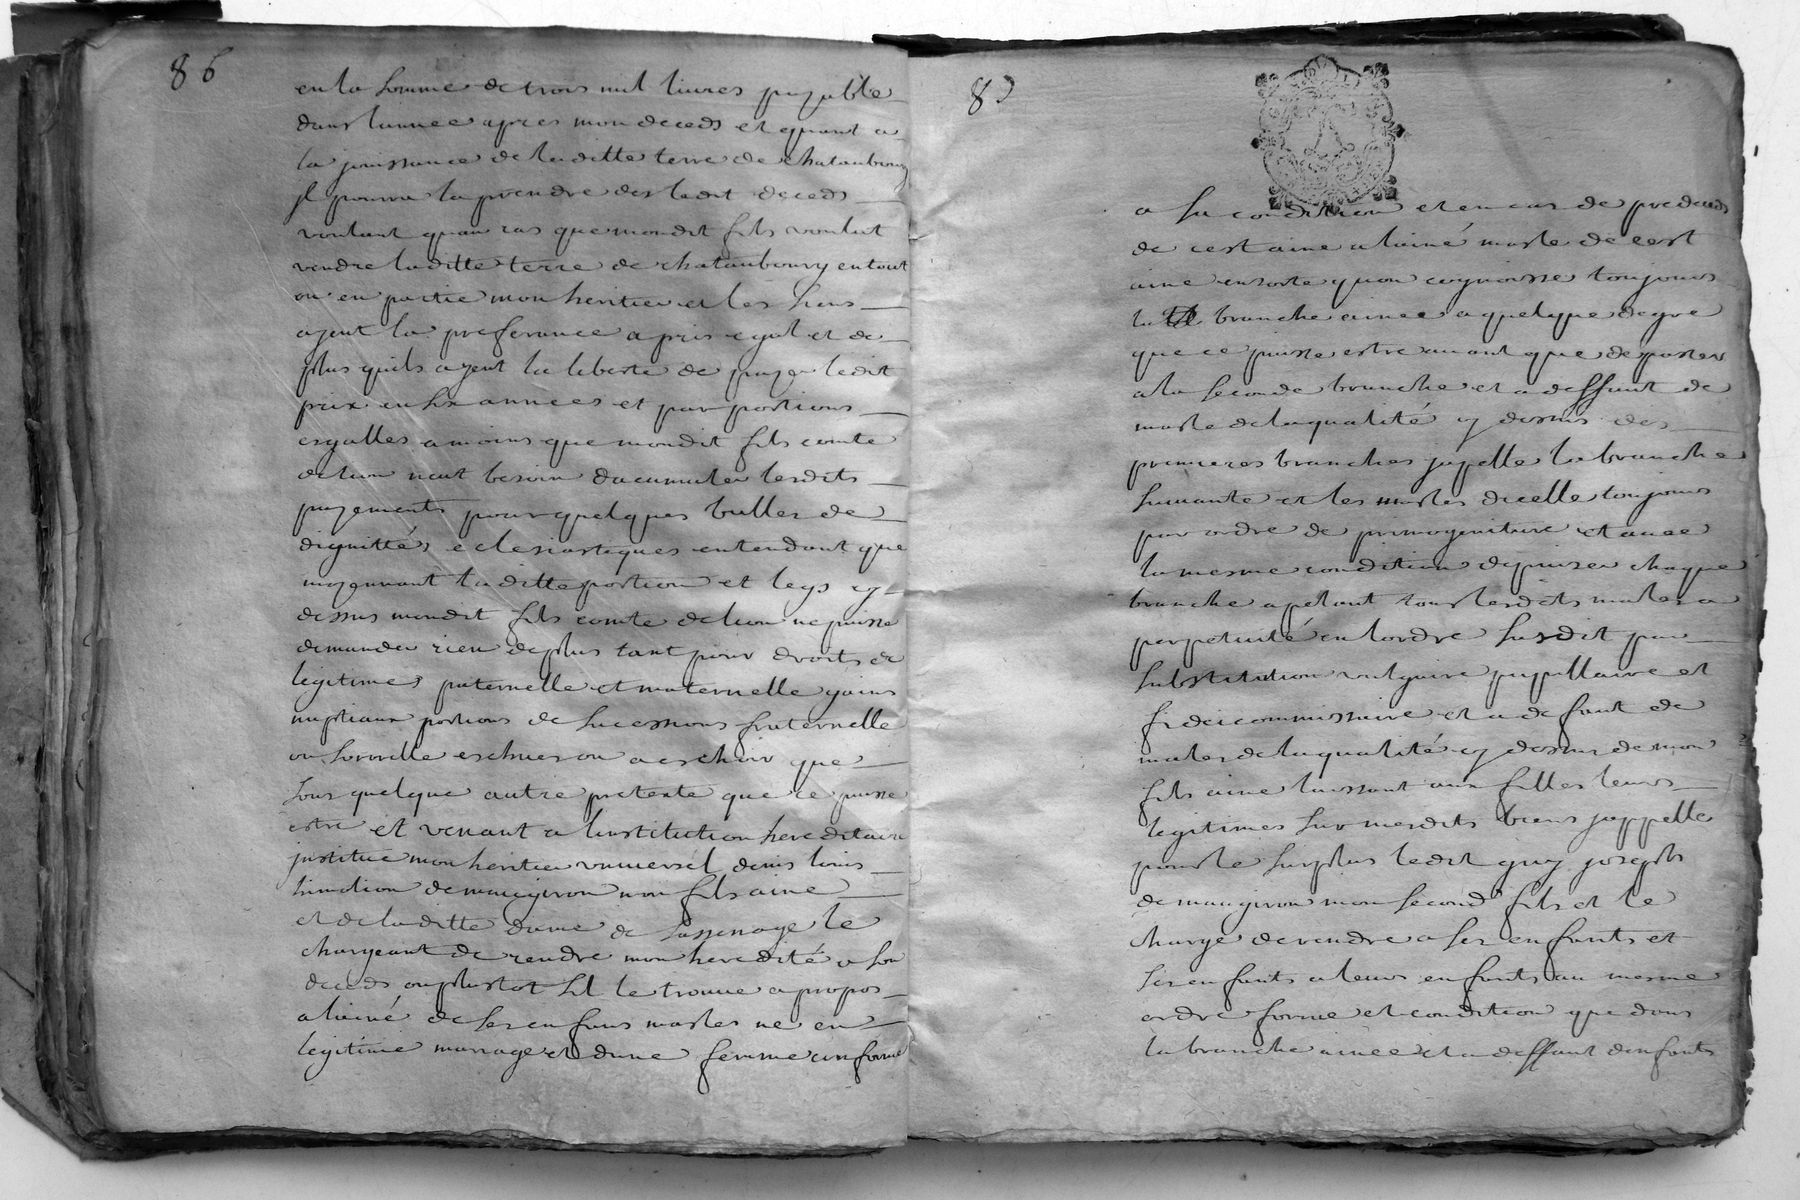 86
en la somme de trois mil livres payable
dans lannee apres mon deceds et quant a
la jouissance de laditte terre de chataubourg
jl pourra la prendre des ledit deceds
voulant quau cas que mondit fils voulut
vendre laditte terre de chataubourg en tout
ou en partie mon heritier et les siens
ayent la preferance a prix egal et de
plus quils ayent la liberte de payer ledit
prix en six annees et par portions
esgalles a moins que mondit fils comte
de lion neut besoin dacumuler lesdits
payements pour quelques bulles de
dignittés eclesiastiques entendant que
moyennant laditte portion et legs cy
dessus mondit fils comte de lion ne puisse
demander rien de plus tant pour droits de
legitimes paternelle et maternelle gains
nuptiaux portions de sucessions fraternelle
ou sororelle escheues ou a eschoir que
sous quelque autre pretexte que ce puisse
estre et venant a linstitution hereditaire
jnstitue mon heritier universel denis louis
timoleon de maugiron mon fils aine
et de laditte dame de sassenage le
chargeant de rendre mon heredité a son
deceds ou plustot sil le trouve a propos
a lainé de ses enfans masles né en
legitime mariage et dune femme conforme
87
a sa condition et en cas de predeceds
de cest aine a lainé masle de cest
aine en sorte quon cognoisse toujours
la branche ainee a quelque degre
que ce puisse estre avant que de passer
a la seconde branche et a deffaut de
masle de la qualité cy dessus des
premieres branches japelle la branche
suivante et les masles dicelle toujours
par ordre de primogeniture et avec
la mesme condition depuiser chaque
branche apelant tous lesdits males a
perpetuité en lordre susdit par
substitution vulgaire pupillaire et
fideicommissaire et a defaut de
males de la qualité cy dessus de mon
fils aine laissant aux filles leurs
legitimes sur mesdits biens jappelle
pour le surplus ledit guy joseph
de maugiron mon second fils et le
charge de rendre a ses enfants et
ses enfants a leurs enfants au mesme
ordre forme et condition que dans
la branche ainee et a deffaut denfants